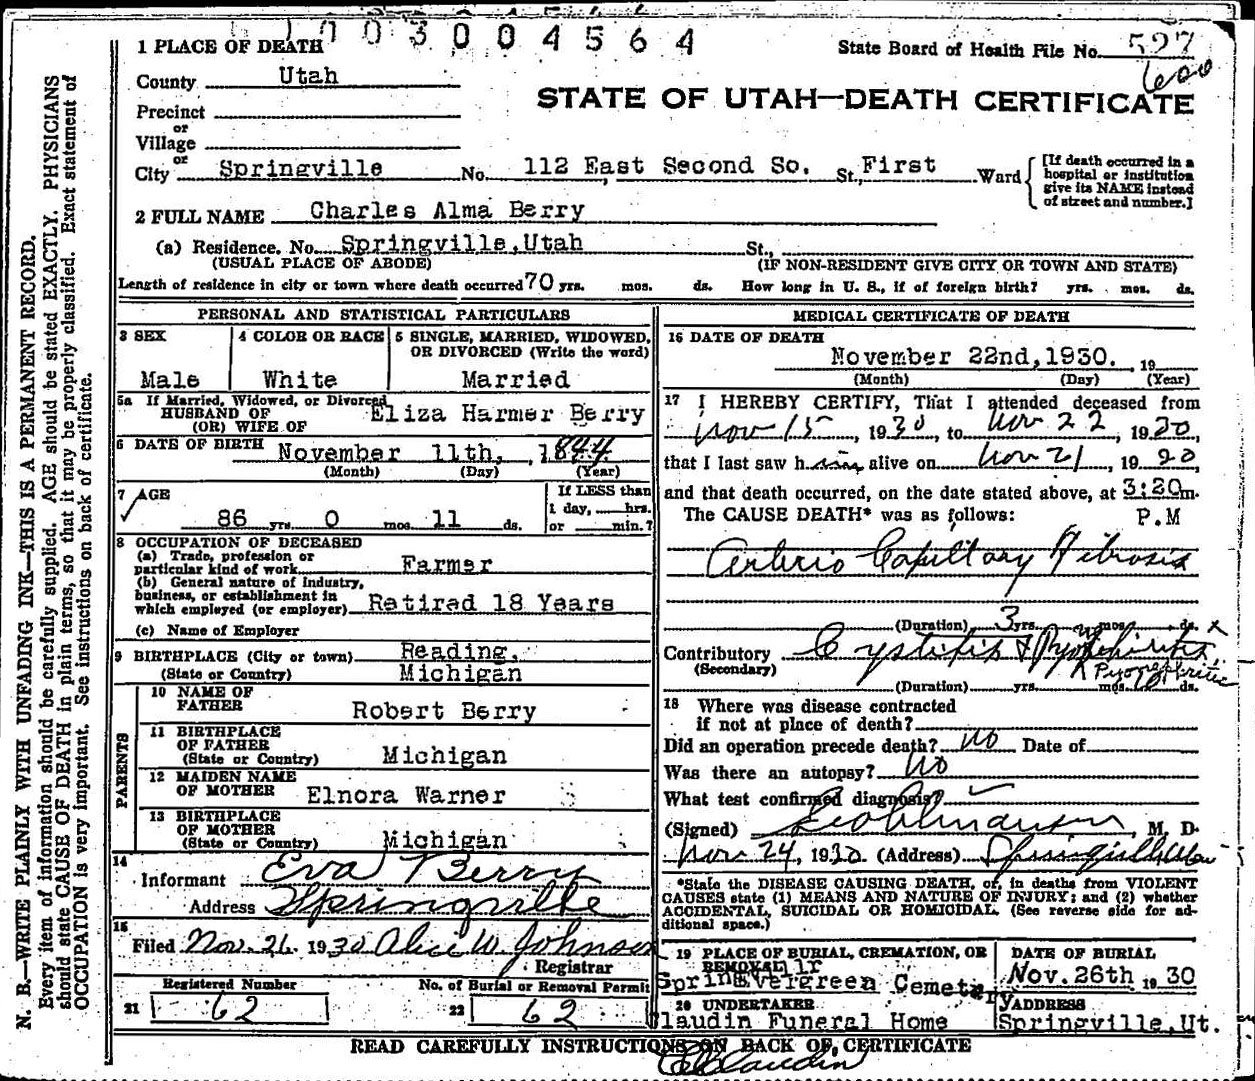 003004564
1 PLACE OF DEATH
State Board of Health File No. 597
600
County Utah
STATE OF UTAH—DEATH CERTIFICATE
Precinct
or
Village
or
City Springville No. 112 East Second So. St., First Ward
[If death occurred in a hospital or institution give its NAME instead of street and number.]
2 FULL NAME Charles Alma Berry
(a) Residence. No. Springville, Utah St.,
(USUAL PLACE OF ABODE) (IF NON-RESIDENT GIVE CITY OR TOWN AND STATE)
Length of residence in city or town where death occurred 70 yrs. mos. ds. How long in U. S., if of foreign birth? yrs. mos. ds.
PERSONAL AND STATISTICAL PARTICULARS
3 SEX
Male
4 COLOR OR RACE
White
5 SINGLE, MARRIED, WIDOWED, OR DIVORCED (Write the word)
Married
5a If Married, Widowed, or Divorced
HUSBAND OF
(OR) WIFE OF
Eliza Harmer Berry
6 DATE OF BIRTH November 11th, 1844
(Month) (Day) (Year)
7 AGE
86 yrs. 0 mos. 11 ds.
If LESS than
1 day, hrs.
or min.?
8 OCCUPATION OF DECEASED
(a) Trade, profession or
particular kind of work Farmer
(b) General nature of industry,
business, or establishment in
which employed (or employer) Retired 18 Years
(c) Name of Employer
9 BIRTHPLACE (City or town) Reading,
(State or Country) Michigan
PARENTS
10 NAME OF
FATHER Robert Berry
11 BIRTHPLACE
OF FATHER
(State or Country) Michigan
12 MAIDEN NAME
OF MOTHER Elnora Warner
13 BIRTHPLACE
OF MOTHER
(State or Country) Michigan
14
Informant Eva Berry
Address Springville
15
Filed Nov. 26 1930 Alice W. Johnson
Registrar
Registered Number
21 62
No. of Burial or Removal Permit
22 62
MEDICAL CERTIFICATE OF DEATH
16 DATE OF DEATH
November 22nd, 1930. 19
(Month) (Day) (Year)
17 I HEREBY CERTIFY, That I attended deceased from
Nov 15, 1930, to Nov 22 1930,
that I last saw him alive on Nov 21, 1930
and that death occurred, on the date stated above, at 3:20m.
The CAUSE DEATH* was as follows: P.M
Arterio Capillary Fibrosis
(Duration) 3 yrs. mos. ds.
Contributory Cystitis & Pyonephritis x
(Secondary)
Pyonephritic
(Duration) yrs. mos. ds.
18 Where was disease contracted
if not at place of death?
Did an operation precede death? No Date of
Was there an autopsy? No
What test confirmed diagnosis?
(Signed) M. D.
Nov. 24, 1930 (Address) Springville Utah
*State the DISEASE CAUSING DEATH, or, in deaths from VIOLENT
CAUSES state (1) MEANS AND NATURE OF INJURY; and (2) whether
ACCIDENTAL, SUICIDAL OR HOMICIDAL. (See reverse side for additional space.)
19 PLACE OF BURIAL, CREMATION, OR
REMOVAL
Evergreen Cemetery
DATE OF BURIAL
Nov. 26th 19 30
20 UNDERTAKER
Claudin Funeral Home
ADDRESS
Springville, Ut.
READ CAREFULLY INSTRUCTIONS ON BACK OF CERTIFICATE
N. B.—WRITE PLAINLY WITH UNFADING INK—THIS IS A PERMANENT RECORD.
Every item of information should be carefully supplied. AGE should be stated EXACTLY. PHYSICIANS
should state CAUSE OF DEATH in plain terms, so that it may be properly classified. Exact statement of
OCCUPATION is very important. See instructions on back of certificate.